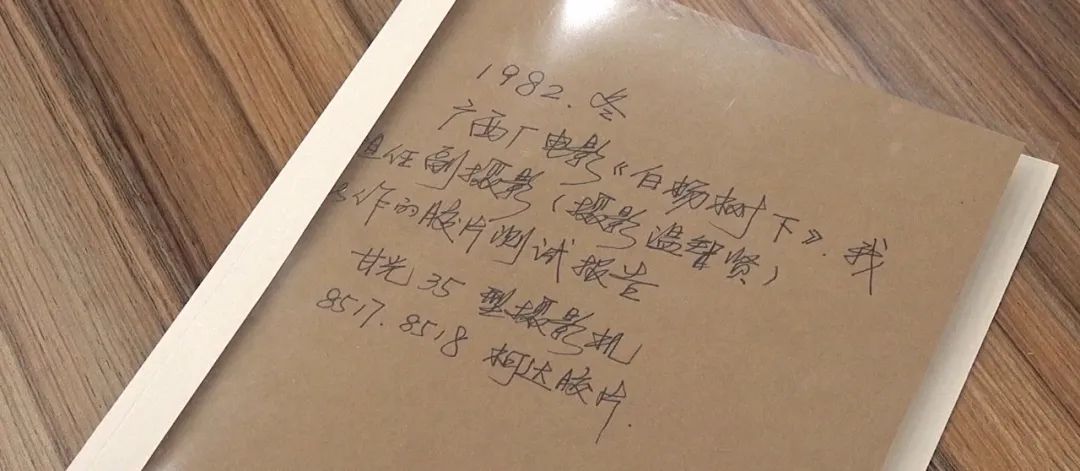 1982.冬
广西厂电影《白杨树下》.我
担任副摄影(摄影温智贤)
作的胶片测试报告
甘光35型摄影机
8517.8518柯达胶片.